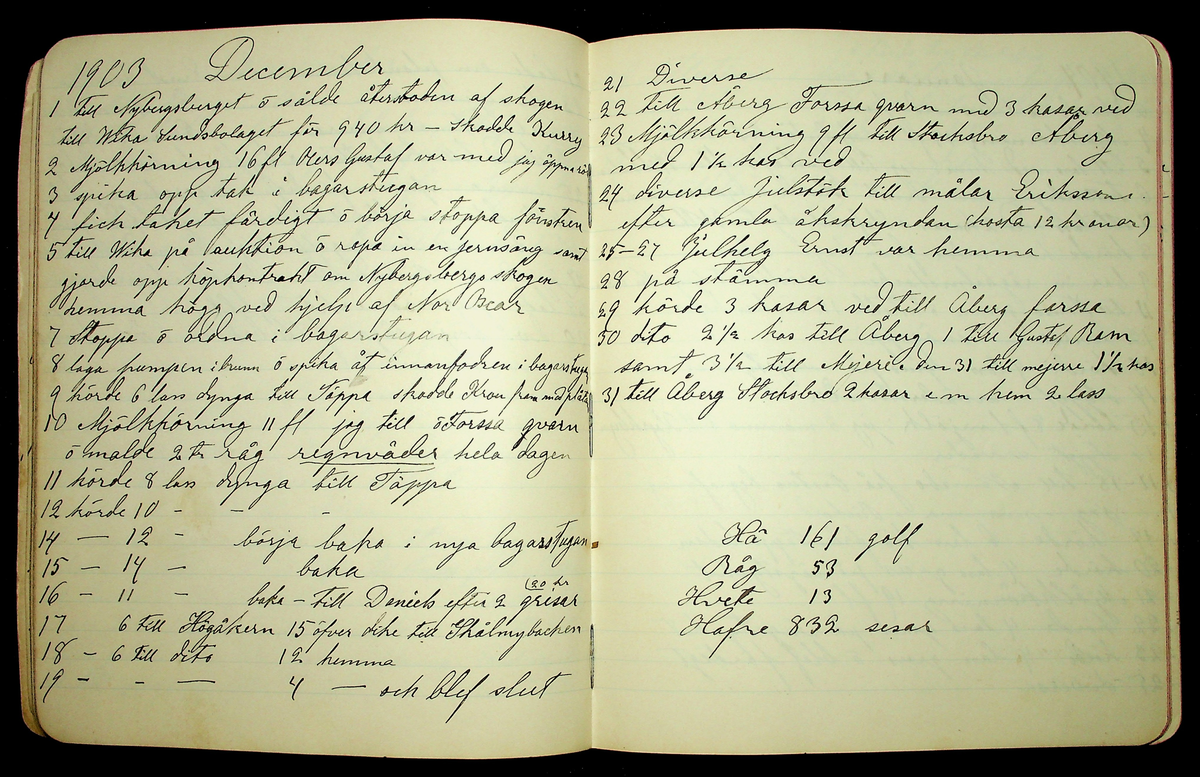 1903 December
1 till Nybergsberget ö sålde återstoden af skogen
till Wika Sundsbolaget för 940 kr — skodde Kurry
2 Mjölkkörning 16 fl Olers Gustaf var med jag öppna
3 spika opp tak i bagarstugan
4 fick taket färdigt ö börja stoppa fönstren
5 till Wika på auktion ö ropa in en jernsäng samt
gjorde opp köpkontrakt om Nybergsbergsskogen
hemma högg ved hjelp af Nor Oscar
7 Stoppa ö ordna i bagarstugan
8 laga pumpen i brunn ö spika åt innanfodren i bagarstugan
9 körde 6 lass dynga till Täppa skodde Kron fram med
10 Mjölkkörning 11 fl jag till ö Forssa qvarn
ö malde 2 t råg regnväder hela dagen
11 körde 8 lass dynga till Täppa
12 körde 10 — — -
14 — 12 - börja baka i nya bagarstugan
15 — 14 — baka
(20 kr
16 — 11 — baka — till Daniels efter 2 grisar
17 6 till Högåkern 15 öfver dike till Skålmybacken
18 — 6 till dito 12 hemma
19 - - — 4 — och blef slut
21 Diverse
22 till Åberg Forssa qvarn med 3 kasar ved
23 Mjölkkörning 9 fl till Stocksbro Åberg
med 1 ½ kas ved
24 diverse julstök till målar Erikssons
efter gamla åkskryndan (kosta 12 kronor)
25–27 Julhelg Ernst var hemma
28 på stämma
29 körde 3 kasar ved till Åberg forssa
30 dito 2 ½ kas till Åberg 1 till Gustaf Ram
samt 3 ½ till Mejeri den 31 till mejerre 1 ½ kas
31 till Åberg Stocksbro 2 kasar e m hem 2 lass
Hö 161 golf
Råg 53
Hvete 13
Hafre 832 sesar